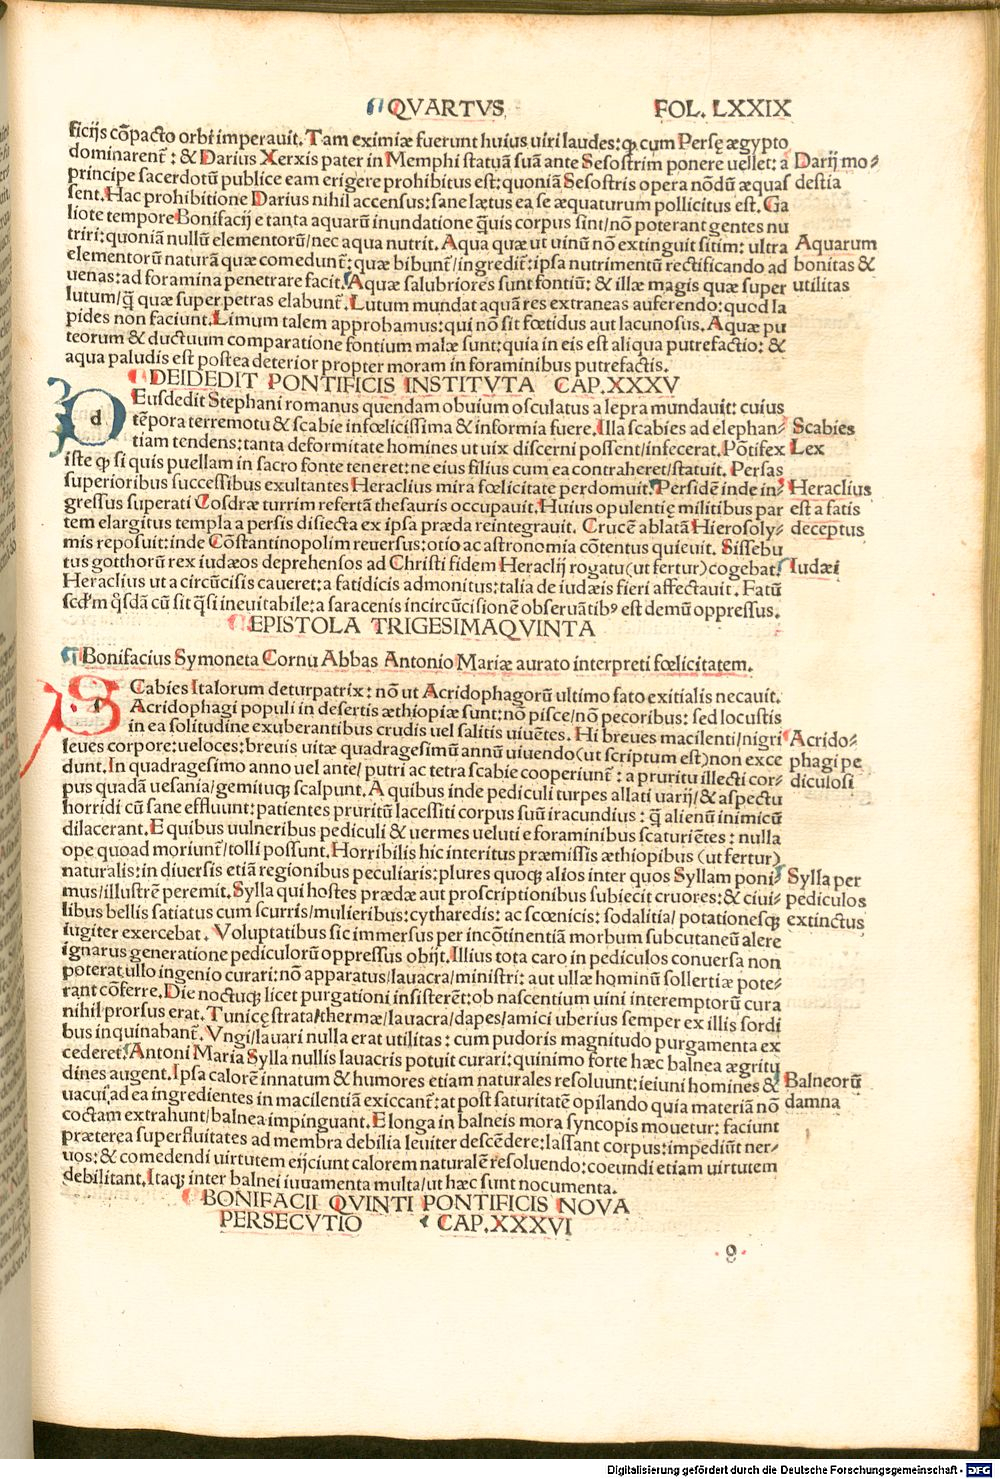 QVARTVS FOL. LXXIX
ficijs cōpacto orbi imperauit. Tam eximiæ fuerunt huius uiri laudes: ꝙ cum Persę ægypto
dominarent̃: & Darius Xerxis pater in Memphi statuā suā ante Sesostrim ponere uellet: a
principe sacerdotū publice eam erigere prohibitus est: quoniā Sesostris opera nōdū æquas
sent. Hac prohibitione Darius nihil accensus: sane lætus ea se æquaturum pollicitus est. Ga
liote tempore Bonifacij e tanta aquarū inundatione q̄uis corpus sint/nō poterant gentes nu
triri: quoniā nullū elementorū/nec aqua nutrit. Aqua quæ ut uinū nō extinguit sitim: ultra
elementorū naturā quæ comedunt̃: quæ bibunt̃/ingredit̃: ipsa nutrimentū rectificando ad
uenas: ad foramina penetrare facit. Aquæ salubriores sunt fontiū: & illæ magis quæ super
lutum/q̄ quæ super petras elabunt̃. Lutum mundat aquā res extraneas auferendo: quod la
pides non faciunt. Limum talem approbamus: qui nō sit fœtidus aut lacunosus. Aquæ pu
teorum & ductuum comparatione fontium malæ sunt: quia in eis est aliqua putrefactio: &
aqua paludis est postea deterior propter moram in foraminibus putrefactis.
Darij mo-
destia
Aquarum
bonitas &
utilitas
DEIDEDIT PONTIFICIS INSTITVTA CAP. XXXV
d Eusdedit Stephani romanus quendam obuium osculatus a lepra mundauit: cuius
tēpora terremotu & scabie infœlicissima & informia fuere. Illa scabies ad elephan-
tiam tendens: tanta deformitate homines ut uix discerni possent/infecerat. Pōtifex
iste ꝙ si quis puellam in sacro fonte teneret: ne eius filius cum ea contraheret/statuit. Persas
superioribus successibus exultantes Heraclius mira fœlicitate perdomuit. Persidē inde in-
gressus superati Cosdræ turrim refertā thesauris occupauit. Huius opulentię militibus par
tem elargitus templa a persis disiecta ex ipsa præda reintegrauit. Crucē ablatā Hierosoly-
mis reposuit: inde Cōstantinopolim reuersus: otio ac astronomia cōtentus quieuit. Sissebu
tus gotthorū rex iudæos deprehensos ad Christi fidem Heraclij rogatu (ut fertur) cogebat.
Heraclius ut a circūcisis caueret: a fatidicis admonitus: talia de iudæis fieri affectauit. Fatū
scd'm q̊sdā cū sit q̄si ineuitabile: a saracenis incircūcisionē obseruātibꝰ est demū oppressus.
Scabies
Lex
Heraclius
est a fatis
deceptus
Iudæi
EPISTOLA TRIGESIMAQVINTA
Bonifacius Symoneta Cornu Abbas Antonio Mariæ aurato interpreti fœlicitatem.
S Cabies Italorum deturpatrix: nō ut Acridophagorū ultimo fato exitialis necauit.
Acridophagi populi in desertis æthiopiæ sunt: nō pisce/nō pecoribus: sed locustis
in ea solitudine exuberantibus crudis uel salitis uiuētes. Hi breues macilenti/nigri
leues corpore: ueloces: breuis uitæ quadragesimū annū uiuendo (ut scriptum est) non exce
dunt. In quadragesimo anno uel ante/ putri ac tetra scabie cooperiunt̃: a pruritu illecti cor-
pus quadā uesania/gemituq; scalpunt. A quibus inde pediculi turpes allati uarij/& aspectu
horridi cū sane effluunt: patientes pruritū lacessiti corpus suū iracundius: q̄ alienū inimicū
dilacerant. E quibus uulneribus pediculi & uermes ueluti e foraminibus scaturiētes: nulla
ope quoad moriunt̃/tolli possunt. Horribilis hic interitus præmissis æthiopibus (ut fertur)
naturalis: in diuersis etiā regionibus peculiaris: plures quoq; alios inter quos Syllam poni-
mus/illustrē peremit. Sylla qui hostes prædæ aut proscriptionibus subiecit cruores: & ciui-
libus bellis satiatus cum scurris/mulieribus: cytharedis: ac scœnicis: sodalitia/ potationesq;
iugiter exercebat. Voluptatibus sic immersus per incōtinentiā morbum subcutaneū alere
ignarus generatione pediculorū oppressus obijt. Illius tota caro in pediculos conuersa non
poterat ullo ingenio curari: nō apparatus/lauacra/ministri: aut ullæ hominū sollertiæ pote-
rant cōferre. Die noctuq; licet purgationi insisterēt: ob nascentium uini interemptorū cura
nihil prorsus erat. Tunicę strata/thermæ/lauacra/dapes/amici uberius semper ex illis sordi
bus inquinabant̃. Vngi/lauari nulla erat utilitas: cum pudoris magnitudo purgamenta ex
cederet. Antoni Maria Sylla nullis lauacris potuit curari: quinimo forte hæc balnea ægritu
dines augent. Ipsa calorē innatum & humores etiam naturales resoluunt: ieiuni homines &
uacui, ad ea ingredientes in macilentiā exiccant̃: at post saturitatē opilando quia materiā nō
coctam extrahunt/balnea impinguant. E longa in balneis mora syncopis mouetur: faciunt
præterea superfluitates ad membra debilia leuiter descēdere: lassant corpus: impediūt ner-
uos: & comedendi uirtutem eijciunt calorem naturalē resoluendo: coeundi etiam uirtutem
debilitant. Itaq; inter balnei iuuamenta multa/ut hæc sunt nocumenta.
Acrido-
phagi pe
diculosi
Sylla per
pediculos
extinctus
Balneorū
damna
BONIFACII QVINTI PONTIFICIS NOVA
PERSECVTIO CAP. XXXVI
Digitalisierung gefördert durch die Deutsche Forschungsgemeinschaft - DFG